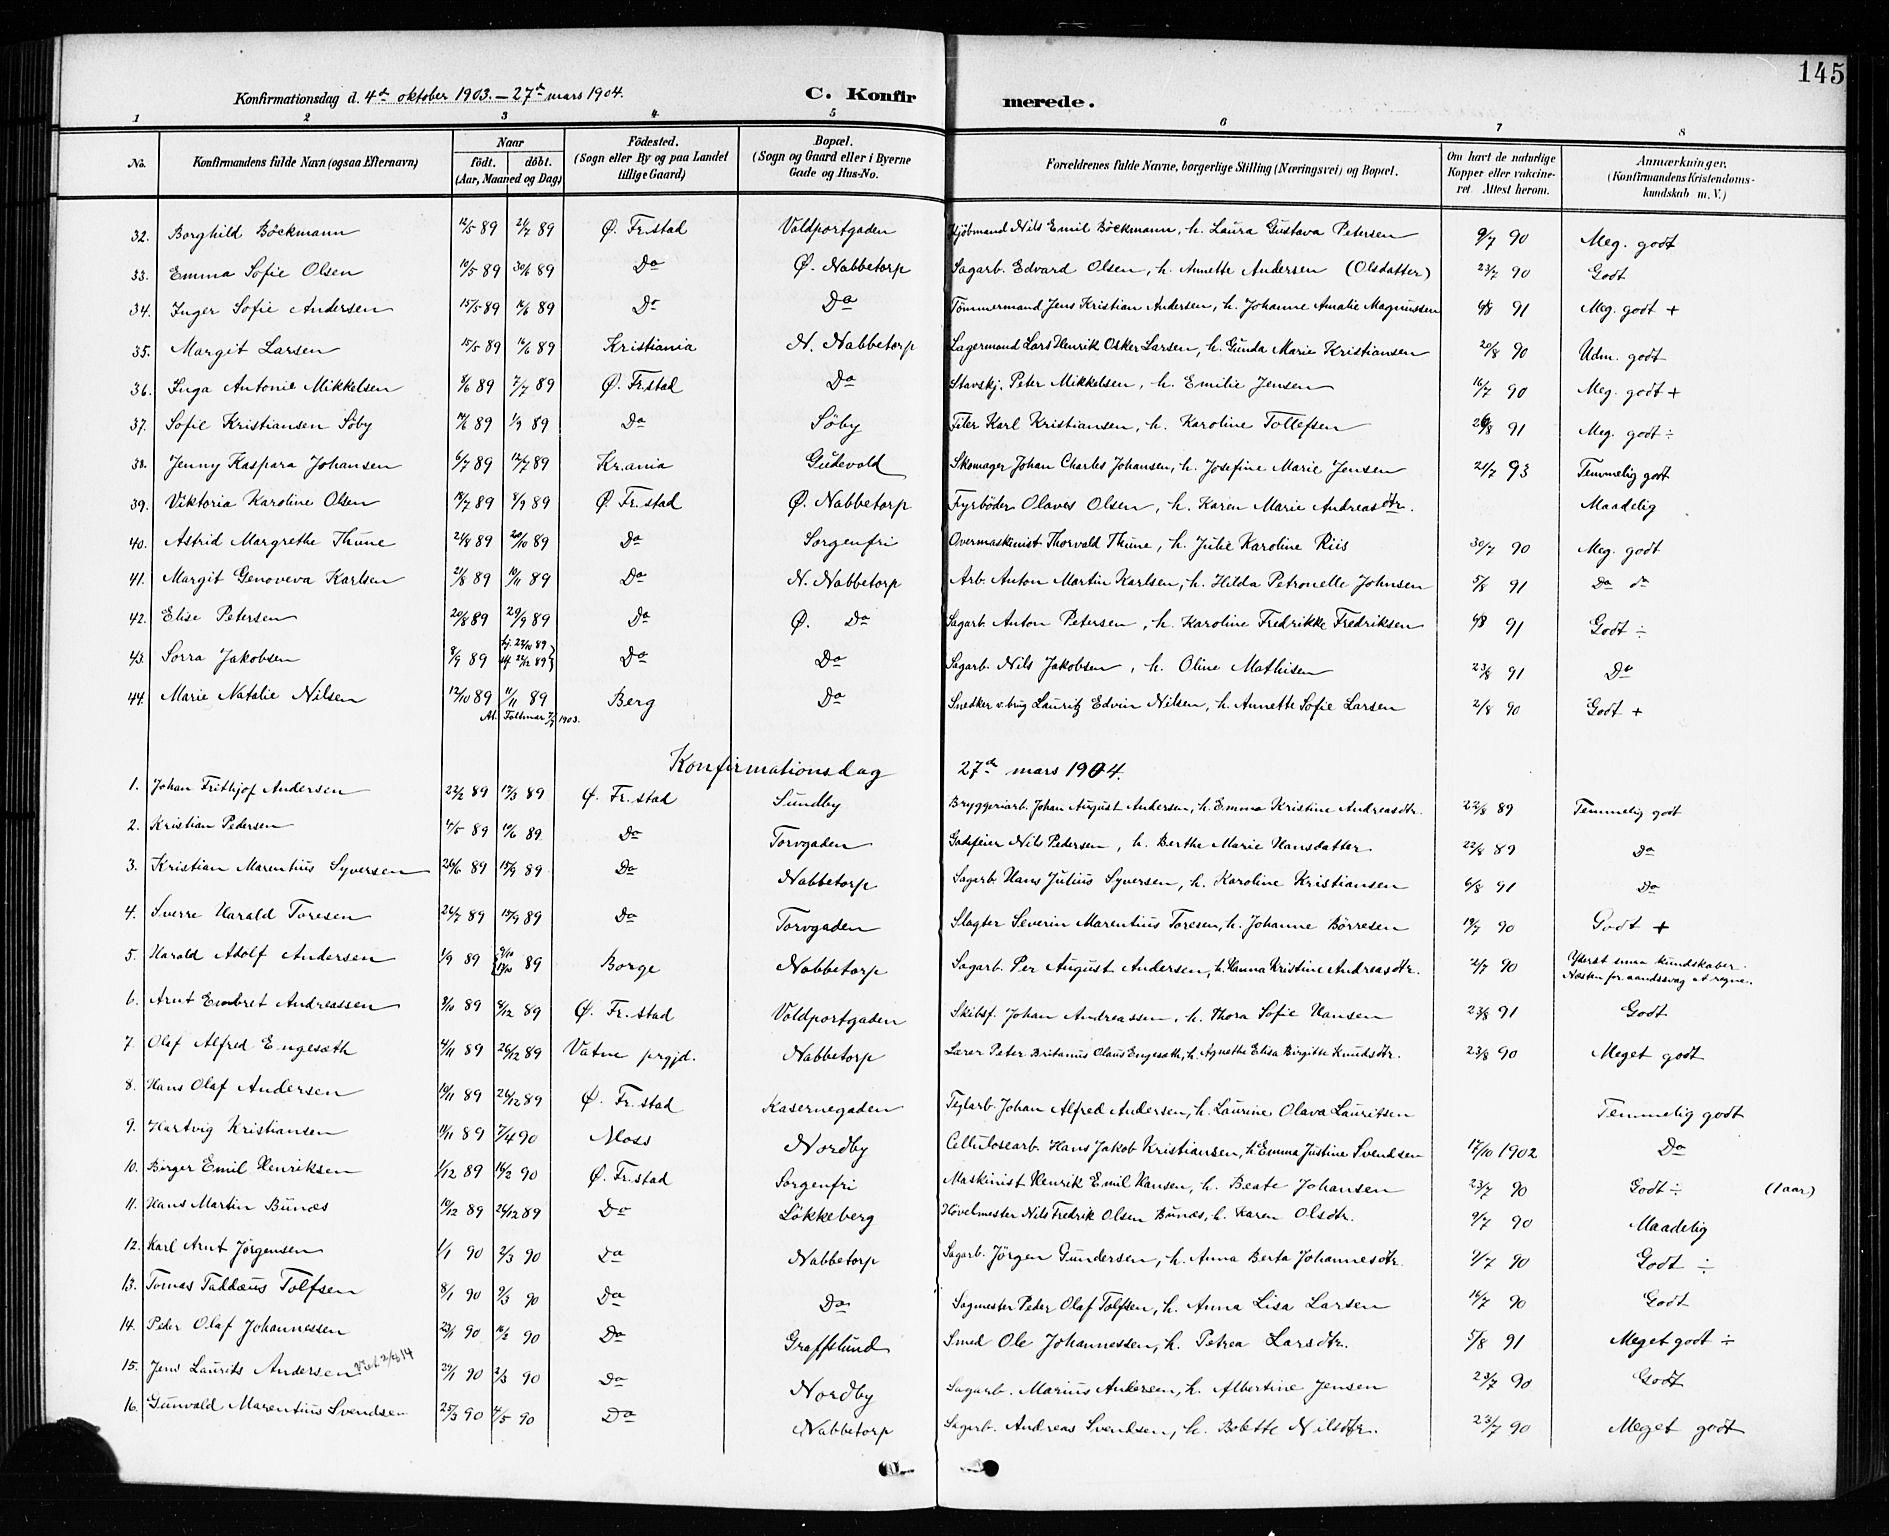 145
Konfirmationsdag d. 4de oktober 1903. – 27de mars 1904. C. Konfir merede.
1 2 3 4 5 6 7 8
No. Konfirmandens fulde Navn (ogsaa Efternavn) Naar födt. döbt. (Aar, Maaned og Dag) Födested. (Sogn eller By og paa Landet tillige Gaard) Bopæl. (Sogn og Gaard eller i Byerne Gade og Hus-No. Forældrenes fulde Navne, borgerlige Stilling (Næringsvei) og Bopæl. Om havt de naturlige Kopper eller vakcineret. Attest herom. Anmærkninger. (Konfirmandens Kristendomskundskab m. V.)
32. Borghild Böckmann 12/5 89 21/7 89 Ø. Fr.stad Voldportgaden Kjöbmand Nils Emil Böckmann, h. Laura Gustava Petersen 9/7 90 Meg. godt
33. Emma Sofie Olsen 10/5 89 30/6 89 Do Ø. Nabbetorp Sagarb. Edvard Olsen, h. Annette Andersen (Olsdatter) 23/7 90 Godt
34. Inger Sofie Andersen 15/5 89 16/6 89 Do Do Tömmermand Jens Kristian Andersen, h. Johanne Amalie Magnussen 6/8 91 Meg. godt +
35. Margit Larsen 15/5 89 16/6 89 Kristiania N. Nabbetorp Lagermand Lars Henrik Osker Larsen, h. Gunda Marie Kristiansen 20/8 90 Udm. godt
36. Inga Antonie Mikkelsen 8/6 89 7/7 89 Ø. Fr.stad Do Stavskj. Peter Mikkelsen, h. Emilie Jensen 16/7 90 Meg. godt +
37. Sofie Kristiansen Söby 89 1/9 89 Do Söby Filer Karl Kristiansen, h. Karoline Tollefsen 91 Meg. godt ÷
38. Jenny Kaspara Johansen 6/7 89 12/7 89 Kr.ania Gudevold Skomager Johan Charles Johansen, h. Josefine Marie Jensen 21/7 93 Temmelig godt
39. Viktoria Karoline Olsen 14/7 89 8/9 89 Ø. Fr.stad Ø. Nabbetorp Fyrböder Olaves Olsen, h. Karen Marie Andreasdtr. Maadelig
40. Astrid Margrethe Thune 21/8 89 20/10 89 Do Sorgenfri Overmaskinist Thorvald Thune, h. Julie Karoline Riis 30/7 90 Meg. godt
41. Margit Genoveva Karlsen 21/8 89 10/11 89 Do N. Nabbetorp Arb. Anton Martin Karlsen, h. Hilda Petronelle Johnsen 5/8 91 Do do
42. Elise Petersen 20/8 89 29/9 89 Do Ø. Do Sagarb. Anton Petersen, h. Karoline Fredrikke Fredriksen 6/8 91 Godt ÷
43. Sorra Jakobsen 8/9 89 89 22/12 89 Do Do Sagarb. Nils Jakobsen, h. Oline Mathisen 23/8 91 Do
44. Marie Natalie Nilsen 12/10 89 11/11 89 Berg Do Snedker v. brug Lauritz Edvin Nilsen, h. Annette Sofie Larsen 2/8 90 Godt +
1903.
Konfirmationsdag 27de mars 1904.
1. Johan Frithjof Andersen 22/2 89 17/3 89 Ø. Fr.stad Sundby Bryggeriarb. Johan August Andersen, h. Emma Kristine Andreasdtr. 22/8 89 Temmelig godt
2. Kristian Pedersen 89 89 Do Torvgaden Gadefeier Nils Pedersen, h. Berthe Marie Hansdatter 22/8 89 Do
3. Kristian Marentius Syversen 26/6 89 15/9 89 Do Nabbetorp Sagarb. Hans Julius Syversen, h. Karoline Kristiansen 6/8 91 Do
4. Sverre Harald Toresen 26/7 89 15/9 89 Do Torvgaden Slagter Severin Marentius Toresen, h. Johanne Börresen 19/7 90 Godt +
5. Harald Adolf Andersen 1/9 89 89 Borge Nabbetorp Sagarb. Per August Andersen, h. Hanna Kristine Andreasdtr. 2/7 90 Yderst smaa kundskaber. Næsten for aandssvag at regne.
6. Arnt Embret Andreassen 8/10 89 8/12 89 Ø. Fr.stad Voldportgaden Skibsf. Johan Andreassen, h. Thora Sofie Hansen 23/8 91 Godt
7. Olaf Alfred Engesæth 4/11 89 26/12 89 Vatne prgjd. Nabbetorp Lærer Peter Britanus Olaus Engesæth, h. Agnethe Elisa Birgitte Knudsdtr. 23/8 90 Meget godt
8. Hans Olaf Andersen 10/11 89 26/12 89 Ø. Fr.stad Kasernegaden Teglarb. Johan Alfred Andersen, h. Laurine Olava Lauritsen Temmelig godt
9. Hartvig Kristiansen 11/11 89 7/4 90 Moss Nordby Cellulosearb. Hans Jakob Kristiansen, h. Emma Justine Svendsen 17/10 1902 Do
10. Birger Emil Henriksen 1/12 89 16/2 90 Ø. Fr.stad Sorgenfri Maskinist Henrik Emil Hansen, h. Beate Johansen 23/7 90 Godt ÷ (1 aar)
11. Hans Martin Bunæs 10/12 89 26/12 89 Do Lökkeberg Hövelmester Nils Fredrik Olsen Bunæs, h. Karen Olsdtr. 9/7 90 Maadelig
12. Karl Arnt Jörgensen 1/1 90 2/3 90 Do Nabbetorp Sagarb. Jörgen Gundersen, h. Anna Berta Johannesdtr. 2/7 90 Godt ÷
13. Tomas Taddæus Tolfsen 8/1 90 9/3 90 Do Do Sagmester Peder Olaf Tolfsen, h. Anna Lisa Larsen 16/7 90 Godt
14. Peder Olaf Johannessen 23/1 90 16/2 90 Do Graffslund Smed Ole Johannessen, h. Petrea Larsdtr. 5/8 91 Meget godt ÷
15. Jens Laurits Andersen 20/1 90 2/3 90 Do Nordby Sagarb. Marius Ankersen, h. Albertine Jensen 23/7 90 Godt
16. Gunvald Marentius Svendsen 25/3 90 4/5 90 Do Nabbetorp Sagarb. Andreas Svendsen, h. Bolette Nilsdtr. 23/7 90 Meget godt